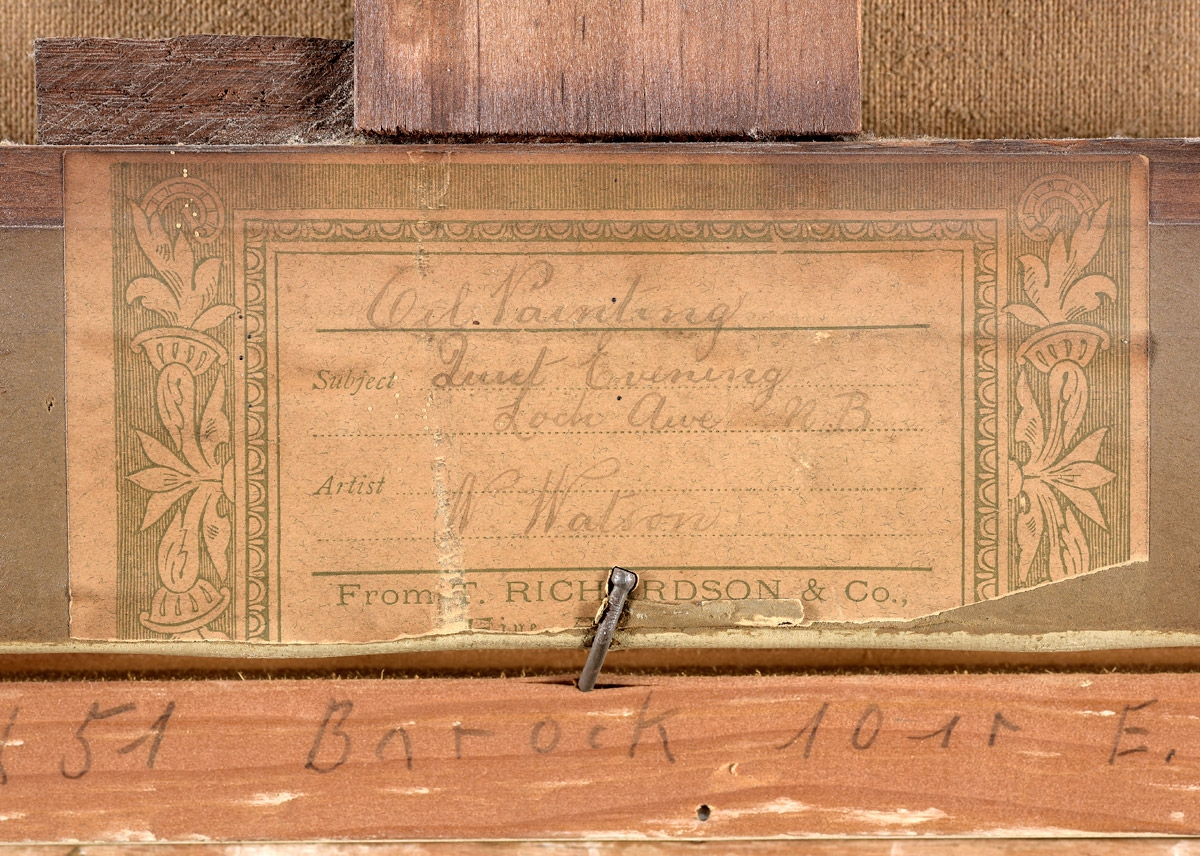 Oil Painting
Subject Quiet Evening
Loch Awe N.B.
Artist
W. Watson
From T. RICHARDSON & Co.,
Fine
51 Barock 10 1r E.